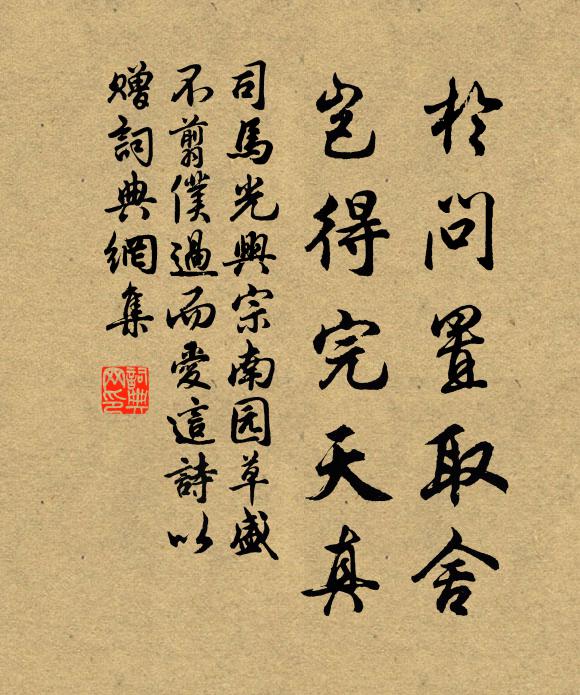 於問置取舍
豈得完天真
司馬光興宗南园草盛
不翦僕過而愛這詩以
贈詞典網集
詞典
网印